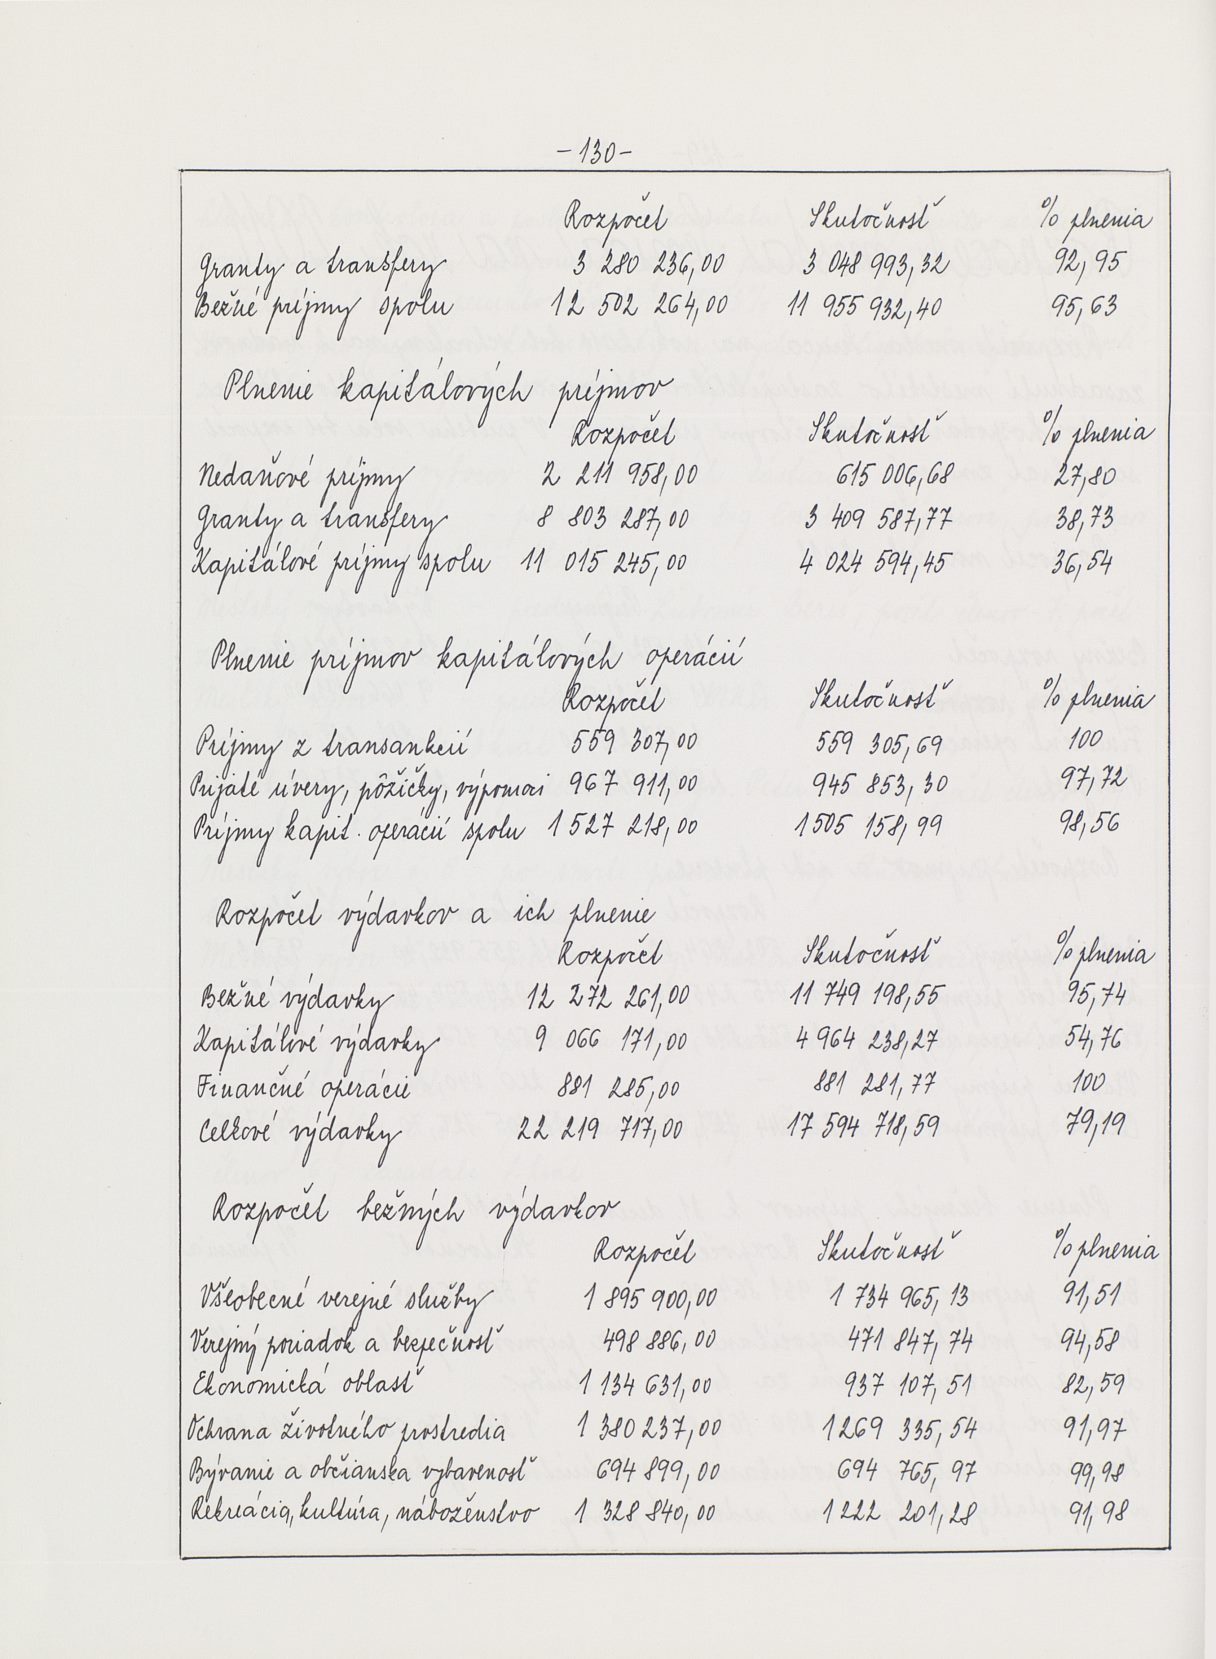 -130-
Rozpočet Skutočnosť % plnenia
Granty a transfery 3 280 236,00 3 048 993,32 92,95
Bežné príjmy spolu 12 502 264,00 11 955 932,40 95,63
Plnenie kapitálových príjmov
Rozpočet Skutočnosť % plnenia
Nedaňové príjmy 2 211 958,00 615 006,68 27,80
Granty a transfery 8 803 287,00 3 409 587,77 38,73
Kapitálové príjmy spolu 11 015 245,00 4 024 594,45 36,54
Plnenie príjmov kapitálových operácií
Rozpočet Skutočnosť % plnenia
Príjmy z transankcií 559 307,00 559 305,69 100
Prijaté úvery, pôžičky, výpomoci 967 911,00 945 853,30 97,72
Príjmy kapit. operácií spolu 1 527 218,00 1 505 158,99 98,56
Rozpočet výdavkov a ich plnenie
Rozpočet Skutočnosť % plnenia
Bežné výdavky 12 272 261,00 11 749 198,55 95,74
Kapitálové výdavky 9 066 171,00 4 964 238,27 54,76
Finančné operácie 881 285,00 881 281,77 100
Celkové výdavky 22 219 717,00 17 594 718,59 79,19
Rozpočet bežných výdavkov
Rozpočet Skutočnosť % plnenia
Všeobecné verejné služby 1 895 900,00 1 734 965,13 91,51
Verejný poriadok a bezpečnosť 498 886,00 471 847,74 94,58
Ekonomická oblasť 1 134 631,00 937 107,51 82,59
Ochrana životného prostredia 1 380 237,00 1 269 335,54 91,97
Bývanie a občianska vybavenosť 694 899,00 694 765,97 99,98
Rekreácia, kultúra, náboženstvo 1 328 840,00 1 222 201,28 91,98